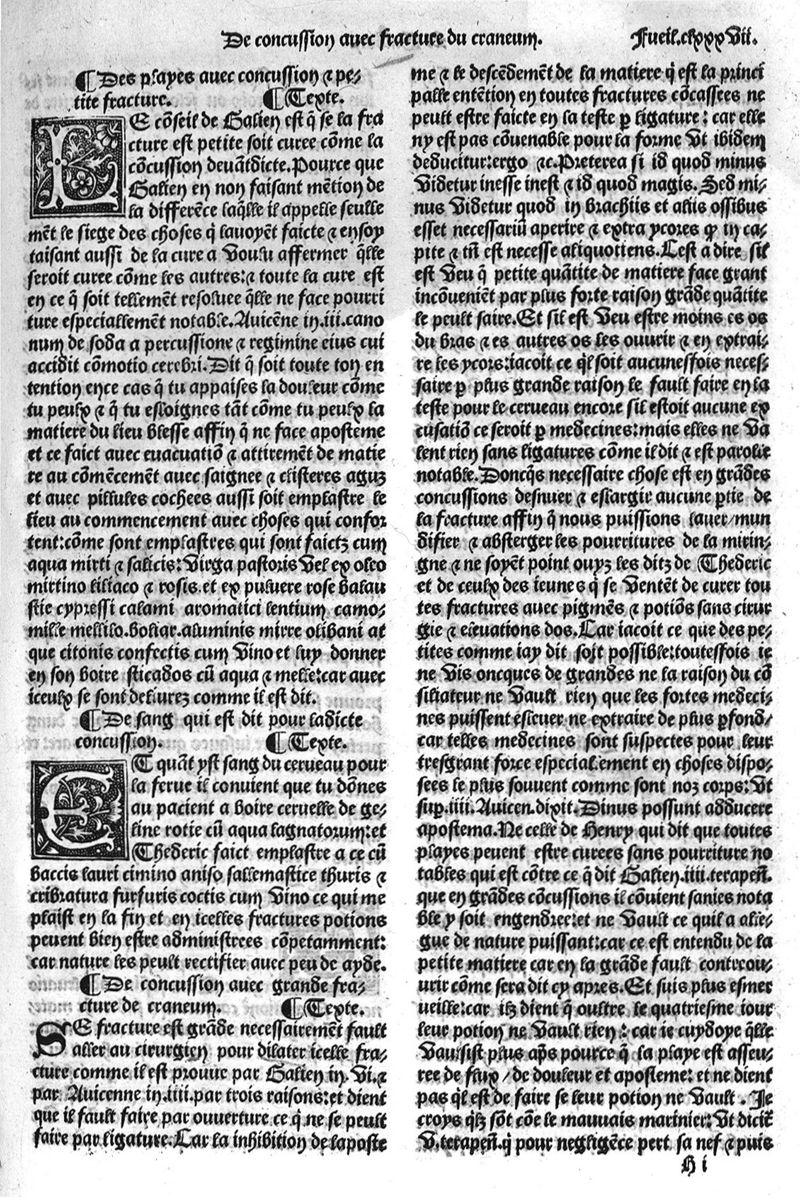 De concussion avec fracture du craneum. Fueil.clxxxvii.
¶Des playes avec concussion ⁊ pe-
tite fracture. ¶Texte.
LE cõseil de Galien est q̃ se la fra
cture est petite soit curee cõme la
cõcussion devãtdicte. Pource que
Galien en non faisant mẽtion de
la differẽce laq̃lle il appelle seulle
mẽt le siege des choses q̃ lavoyẽt faicte ⁊ en soy
taisant aussi de la cure a voulu affermer q̃lle
seroit curee cõme les autres:⁊ toute la cure est
en ce q̃ soit tellement resoluee q̃lle ne face pourri
ture especiallemẽt notable. Avicẽne in.iii.cano
num de soda a percussione ⁊ regimine eius cui
accidit cõmotio cerebri. Dit q̃ soit toute ton en
tention en ce cas q̃ tu appaises la douleur cõme
tu peulx ⁊ q̃ tu esloignes tãt cõme tu peulx la
matiere du lieu blesse affin q̃ ne face aposteme
et ce faict avec evacuatiõ ⁊ attiremẽt de matie
re au cõmẽcemẽt avec saignee ⁊ clisteres aguz
et avec pillules cochees aussi soit emplastre le
lieu au commencement avec choses qui confor
tent:cõme sont emplastres qui sont faictz cum
aqua mirti ⁊ salicis: virga pastoris vel ex oleo
mirtino liliaco ⁊ rosis.et ex pulvere rose balau
stie cypressi calami aromatici lentium camo-
mille mellilo.boliar.aluminis mirre olibani at
que citonis confectis cum vino et luy donner
en son boire sticados cũ aqua ⁊ melle:car avec
iceulx se sont delivrez comme il est dit.
¶De sang qui est dit pour ladicte
concussion. ¶Texte.
ET quãt yst sang du cerveau pour
la ferue il convient que tu dõnes
au pacient a boire cervelle de ge-
line rotie cũ aqua lagnatorum:et
Thederic faict emplastre a ce cũ
baccis lauri cimino aniso sallemastice thuris ⁊
cribratura furfuris coctis cum vino ce qui me
plaist en la fin et en icelles fractures potions
peuent bien estre administrees cõpetamment:
car nature les peult rectifier avec peu de ayde.
¶De concussion avec grande fra-
cture de craneum. ¶Texte.
SE fracture est grãde necessairemẽt fault
aller au cirurgien pour dilater icelle fra-
cture comme il est prouve par Galien in.vi.⁊
par Avicenne in.iiii.par trois raisons:et dient
que il fault faire par ouverture ce q̃ ne se peult
faire par ligature. Car la inhibition de laposte
me ⁊ le descẽdemẽt de la matiere q̃ est la princi
palle entẽtion en toutes fractures cõcassees ne
peult estre faicte en la teste ꝑ ligature: car elle
ny est pas cõvenable pour la forme vt ibidem
deducitur:ergo ⁊c. Preterea si id quod minus
videtur inesse inest ⁊ id quod magis. Sed mi-
nus videtur quod in brachiis et aliis ossibus
esset necessariũ aperire ⁊ extra ycores q̃ in ca-
pite ⁊ tñ est necesse aliquotiens. Cest a dire sil
est veu q̃ petite quãtite de matiere face grant
incõveniẽt par plus forte raison grãde quãtite
le peult faire. Et sil est veu estre moins es os
du bras ⁊ es autres os les ouvrir ⁊ en extrai-
re les ycors:iacoit ce q̃l soit aucunesfois neces-
saire ꝑ plus grande raison le fault faire en la
teste pour le cerveau encore sil estoit aucune ex
cusatiõ ce seroit ꝑ medecines:mais elles ne va
lent rien sans ligatures cõme il dit ⁊ est parolle
notable. Doncq̃s necessaire chose est en grãdes
concussions desnuer ⁊ eslargir aucune ꝑtie de
la fracture affin q̃ nous puissions laver/mun
difier ⁊ absterger les pourritures de la mirin-
gne ⁊ ne soyẽt point ouyz les ditz de Thederic
et de ceulx des ieunes q̃ se vẽtẽt de curer tou
tes fractures avec pigmẽs ⁊ potiõs sans cirur
gie ⁊ elevations dos. Car iacoit ce que des pe-
tites comme iay dit soit possible:toutesfois ie
ne vis oncques de grandes ne la raison du cõ
siliateur ne vault rien que les fortes medeci-
nes puissent eslever ne extraire de plus ꝑfond/
car telles medecines sont suspectes pour leur
tresgrant force especialement en choses dispo-
sees le plus souvent comme sont noz corps: vt
sup.iiii. Avicen.dixit. Dinus possunt adducere
apostema. Ne celle de Henry qui dit que toutes
playes peuent estre curees sans pourriture no
tables qui est cõtre ce q̃ dit Galien.iiii.terapeñ.
que en grãdes cõcussions il cõvient sanies nota
ble y soit engendree:et ne vault ce quil a alle-
gue de nature puissant:car ce est entendu de la
petite matiere car en la grãde fault contrcou-
urir cõme sera dit cy apres. Et suis plus esmer
veille:car ilz dient q̃ oultre le quatriesme iour
leur potion ne vault rien: car ie cuydoye q̃lle
vaulsist plus ap̃s pource q̃ la playe est asseu-
ree de flux/de douleur et aposteme:et ne dient
pas q̃l est de faire se leur potion ne vault. Je
croys q̃lz sõt cõe le mauvais marinier: vt dicit̃
v.terapeñ.q̃ pour negligẽce pert sa nef ⁊ puis
H i